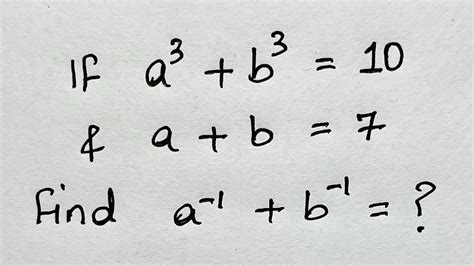 If a³ + b³ = 10
& a + b = 7
Find a⁻¹ + b⁻¹ = ?